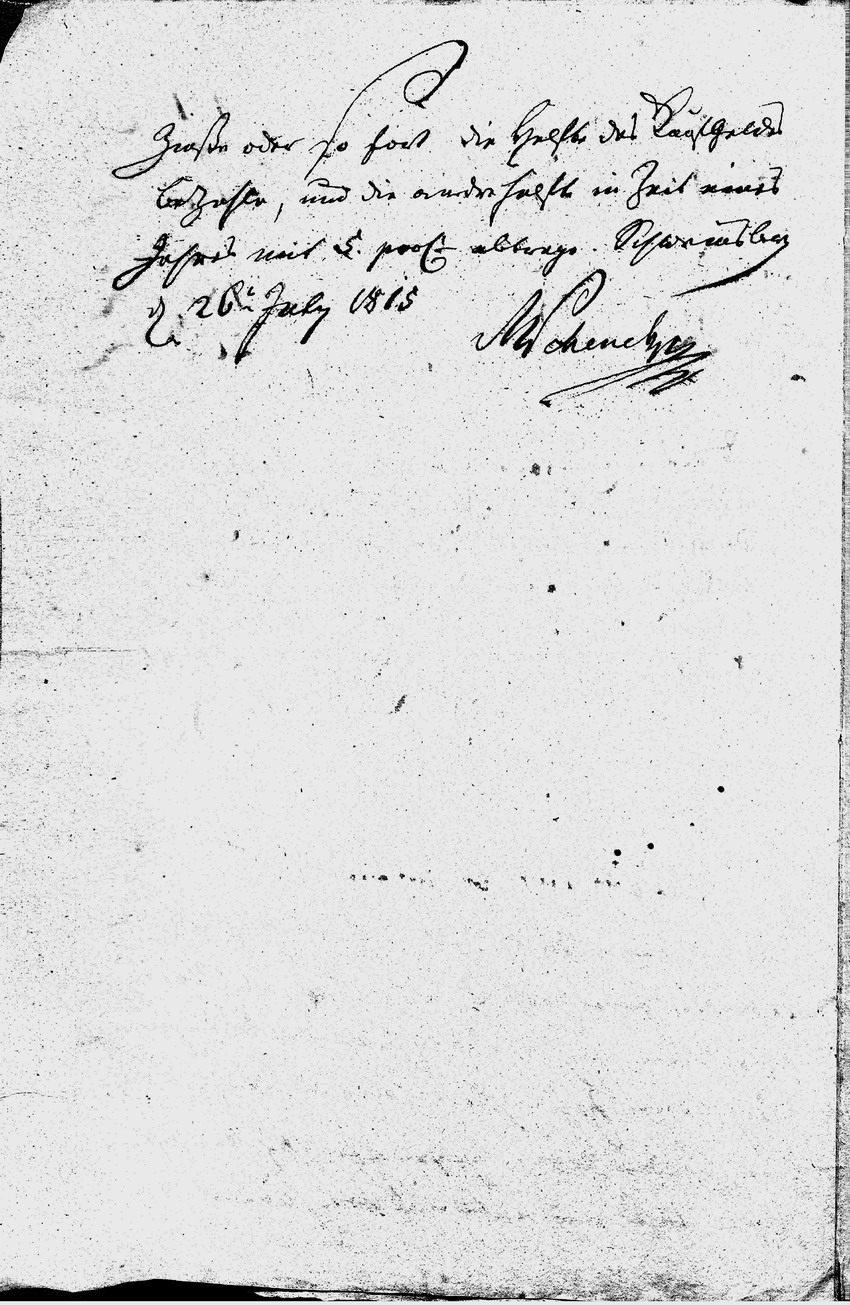 oder so fort die Helfte des Kaufgeldes
bezahle, und die andre helfte in Zeit eines
Jahres mit 5. proCt abtrage. Schweinsberg
d 26t July 1815
Schenck